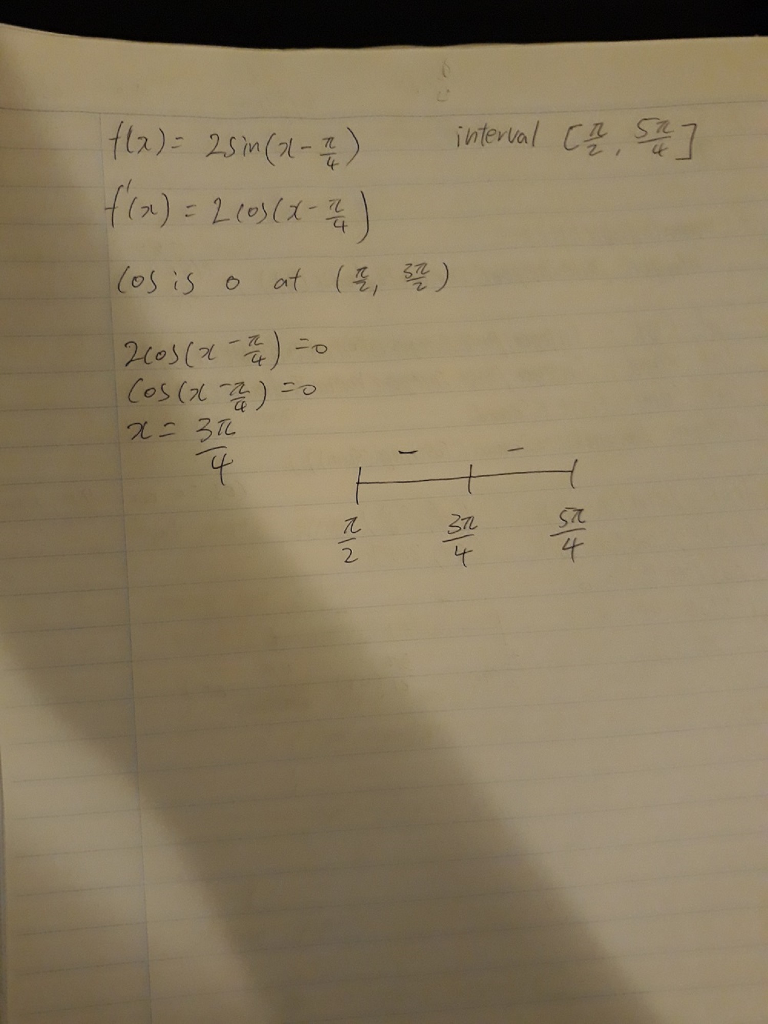 f(x) = 2sin(x - π/4) interval [π/2, 5π/4]
f'(x) = 2cos(x - π/4)
Cos is 0 at (π/2, 3π/2)
2cos(x - π/4) = 0
Cos(x - π/4) = 0
x = 3π/4
- -
π/2 3π/4 5π/4